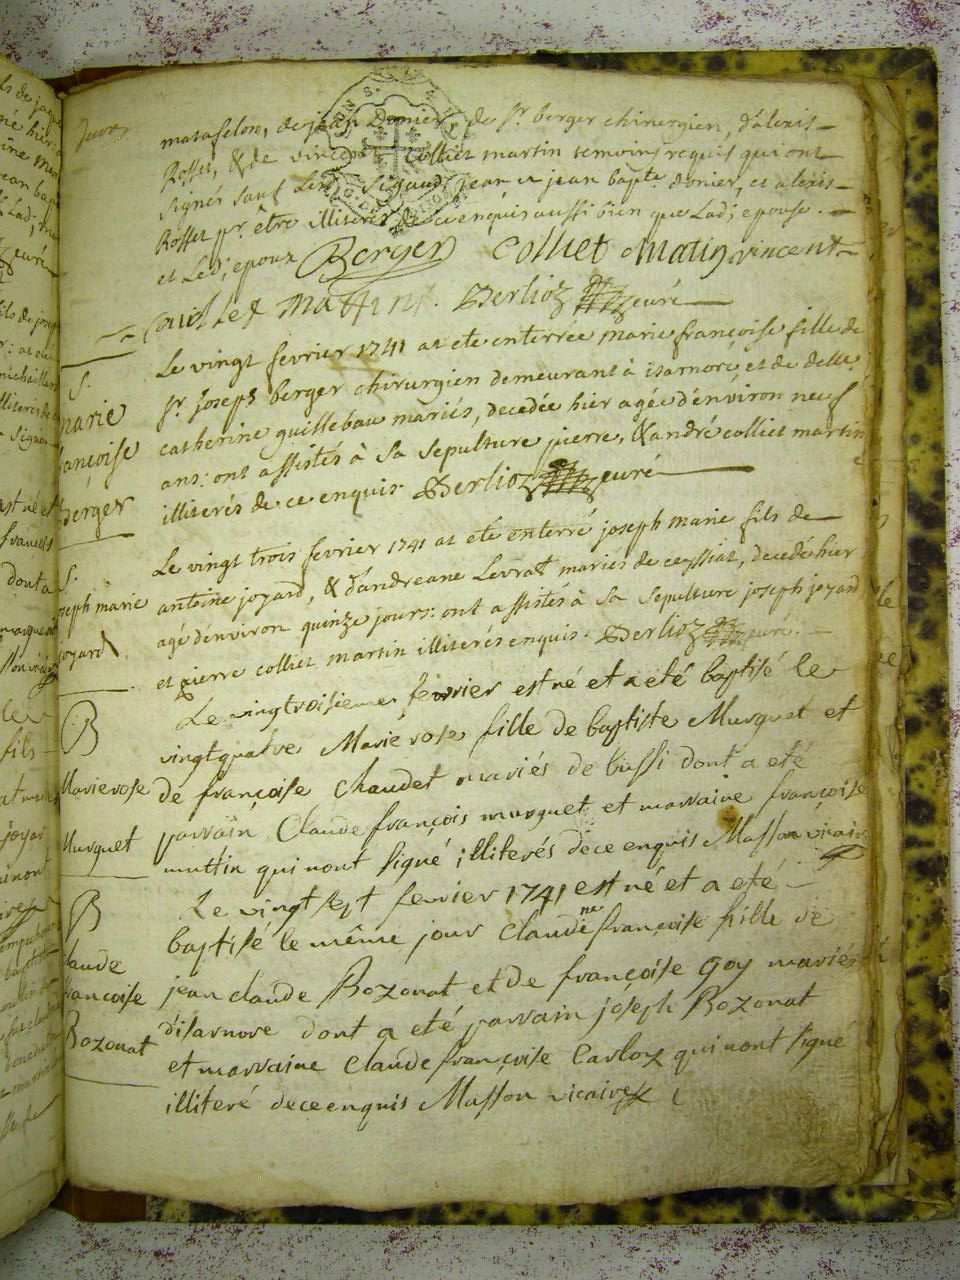 matafelon, de jean Donier, de Sr. berger chirurgien, d'alexis
Rosset, & de vincent Colliet martin temoins requis qui ont
signés sauf jean u jean bapte. donier, et alexis
Rosset pr. être illiterés de ce enquis aussi bien que Lad; epouse.
et Led; epoux Berger Colliet Matin vincent
Couilet Mattint. Derlioz curé
S.
marie
ançoise
berger
Le vingt fevrier 1741 at ete enterrée marie françoise fille de
Sr. joseph berger chirurgien demeurant à isarnore, et de delle.
catherine guillebau mariés, decedée hier agée d'environ neuf
ans: ont assistés à sa sepulture pierre, & andré colliet martin
illiterés de ce enquis. Derlioz curé
S.
oseph marie
joyard
Le vingt trois fevrier 1741 at ete enterré joseph marie fils de
antoine joyard, & d'andreane Levrat mariés de ceyssiat, decedé hier
agé d'environ quinze jours: ont assistés à sa sepulture joseph joyard
et pierre colliet martin illiterés enquis. Derlioz curé.
B
Marie rose
Murguet
Le vingtroisieme fevrier est né et a eté baptisé le
vingtquatre Marie rose fille de baptiste Murguet et
de françoise Chaudet mariés de bussi dont a eté
parrain Claude françois murguet et marraine françoise
muttin qui nont signé illiterés dece enquis Masson vicaire
B
laude
rancoise
Bozonat
Le vingt sept fevrier 1741 est né et a eté
baptisé le même jour Claudine françoise fille de
jean claude Bozonat et de françoise Goy mariés
d'isarnore dont a eté parrain joseph Bozonat
et marraine Claude françoise Carloz qui nont signé
illiteré dece enquis Masson vicaire